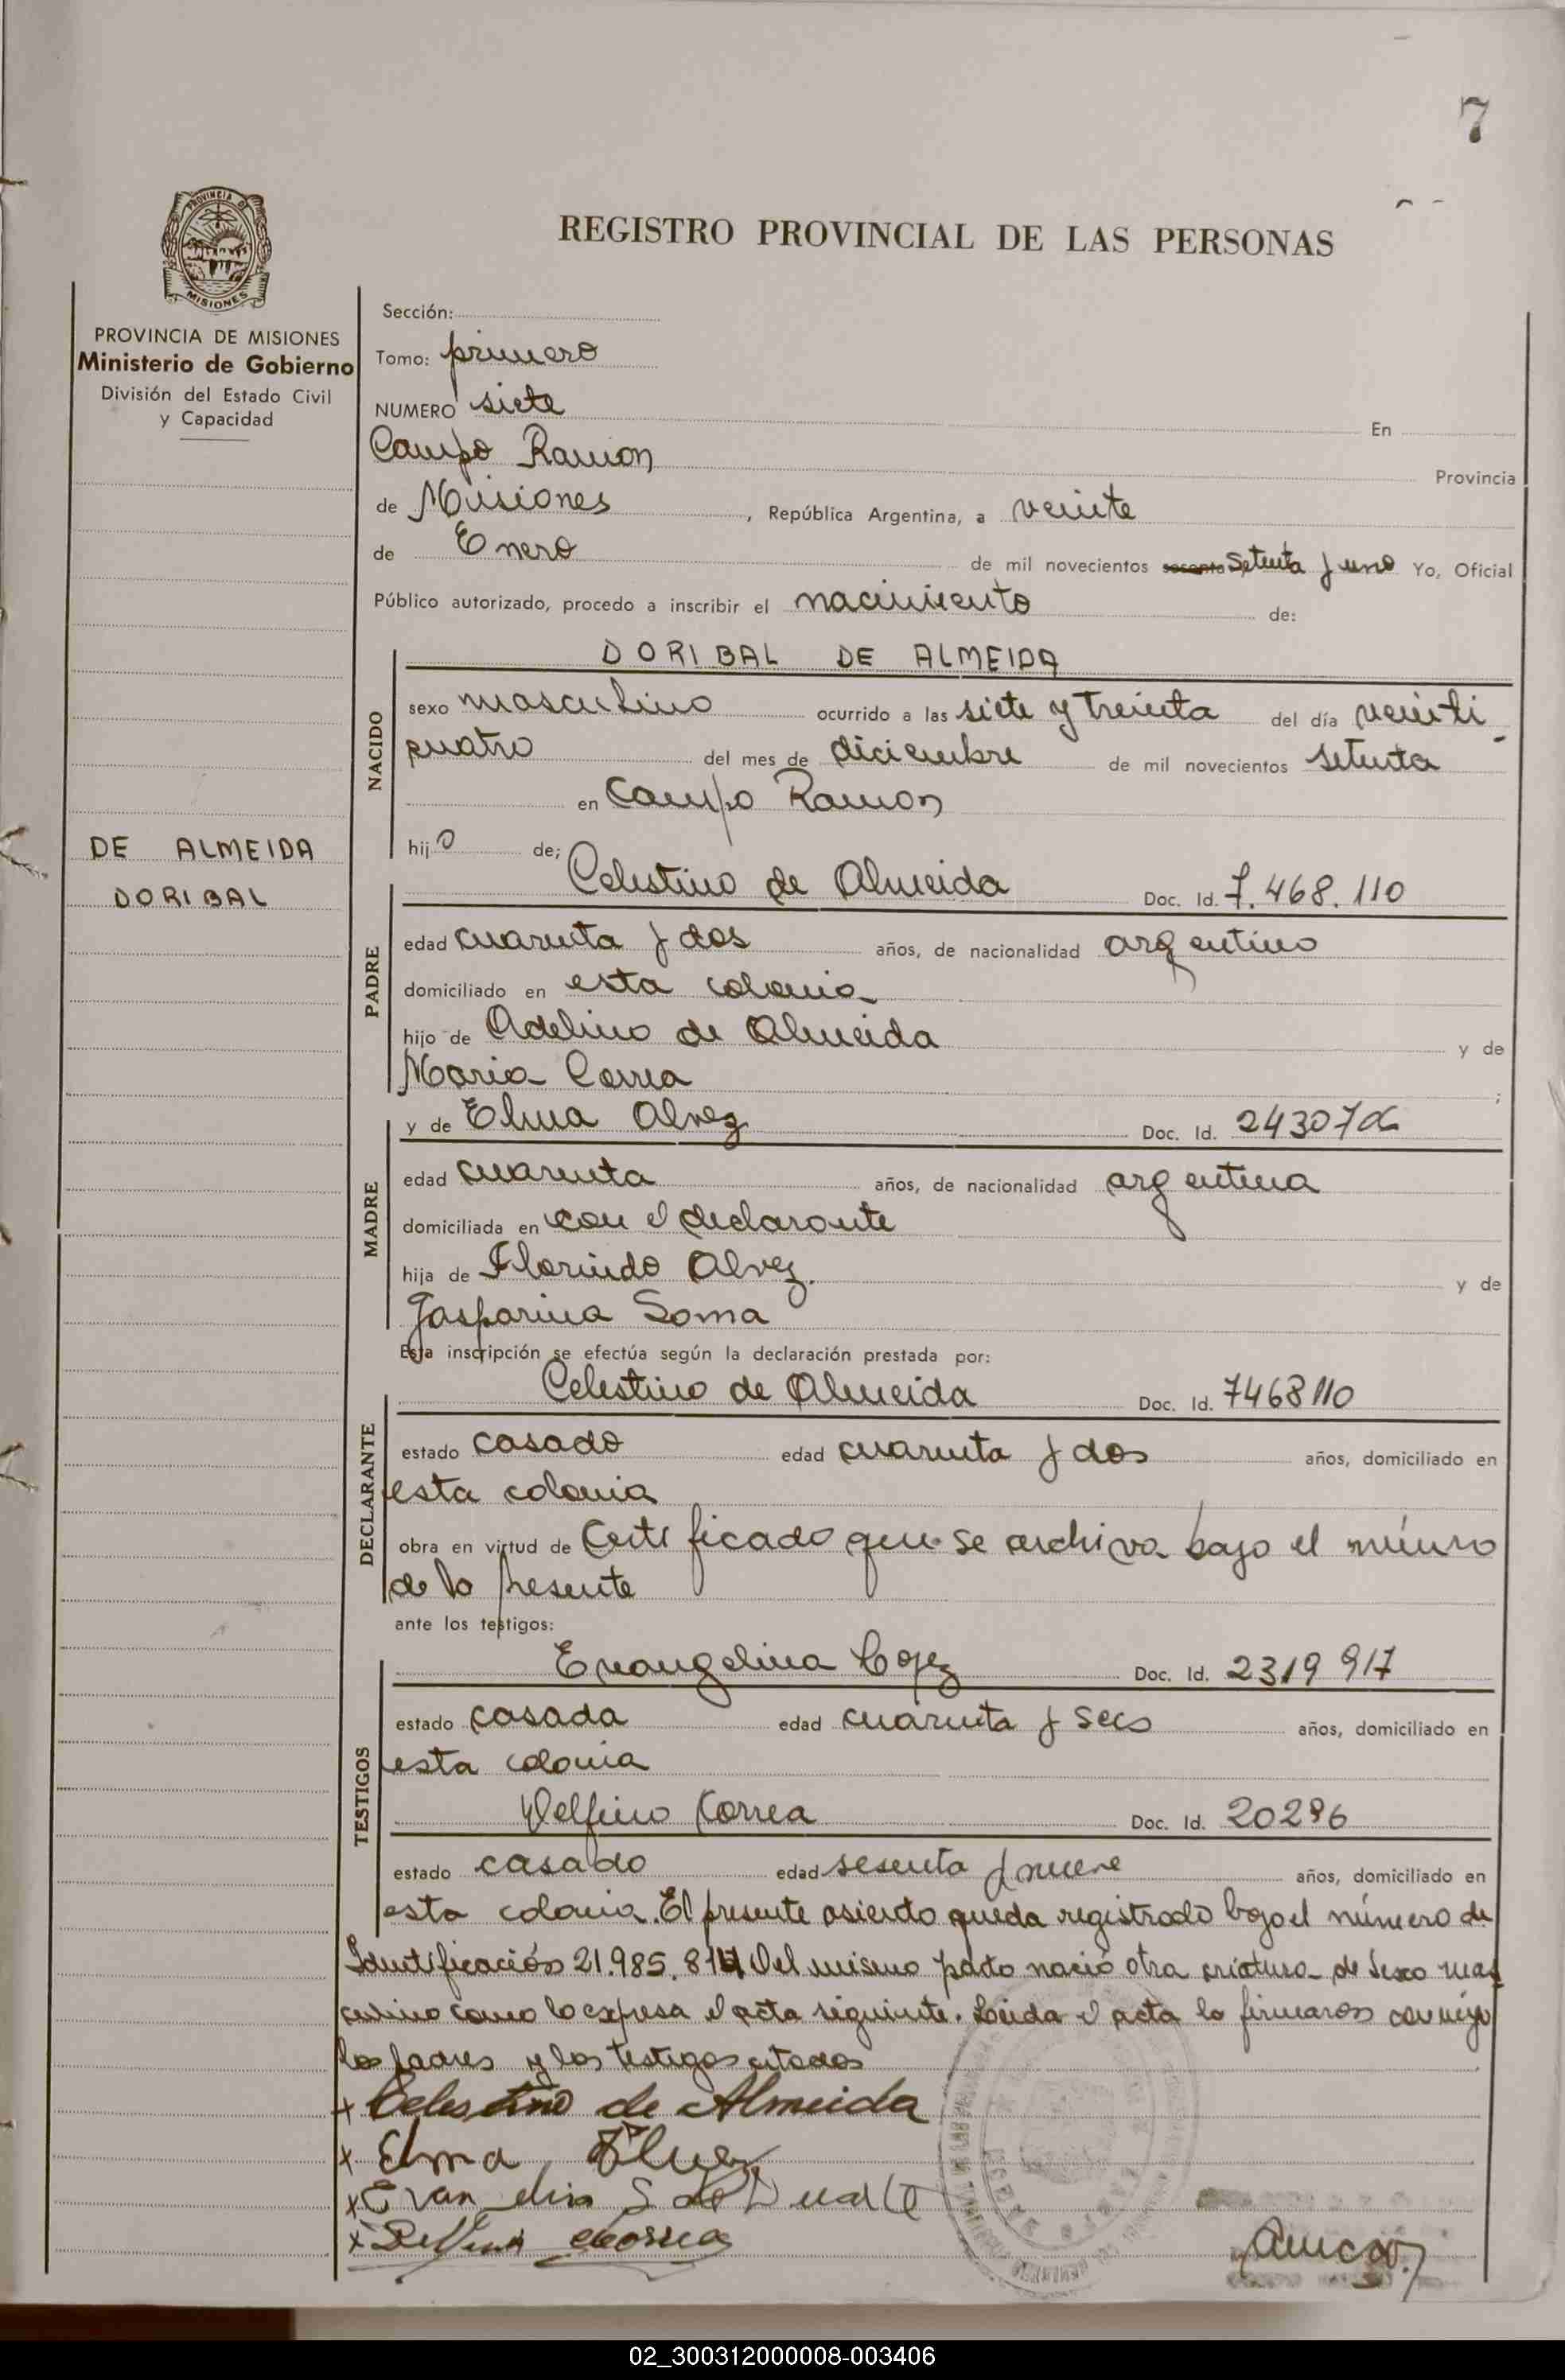 7
REGISTRO PROVINCIAL DE LAS PERSONAS
PROVINCIA DE
MISIONES
PROVINCIA DE MISIONES
Ministerio de Gobierno
División del Estado Civil
y Capacidad
DE ALMEIDA
DORIBAL
Sección:
Tomo: primero
NUMERO siete En
Campo Ramon Provincia
de Misiones, República Argentina, a veinte
de Enero de mil novecientos sesenta Setenta y uno Yo, Oficial
Público autorizado, procedo a inscribir el nacimiento de:
DORIBAL DE ALMEIDA
NACIDO
sexo masculino ocurrido a las siete y treinta del día veinti
cuatro del mes de diciembre de mil novecientos setenta
en Campo Ramon
hijo de;
PADRE
Celestino de Almeida Doc. Id. 7.468.110
edad cuarenta y dos años, de nacionalidad argentino
domiciliado en esta colonia
hijo de Adelino de Almeida y de
Maria Correa ;
MADRE
y de Elma Alvez Doc. Id. 2430706
edad cuarenta años, de nacionalidad argentina
domiciliada en con el declarante
hija de Florindo Alvez. y de
Gasparina Soma
Esta inscripción se efectúa según la declaración prestada por:
DECLARANTE
Celestino de Almeida Doc. Id. 7468110
estado casado edad cuarenta y dos años, domiciliado en
esta colonia
obra en virtud de Certificado que se archiva bajo el número
de la presente
ante los testigos:
TESTIGOS
Evangelina Doc. Id. 2319917
estado casada edad cuarenta y seis años, domiciliado en
esta colonia
Delfino Correa Doc. Id. 20296
estado casado edad sesenta y nueve años, domiciliado en
esta colonia. El presente asiento queda registrado bajo el número de
Identificación 21.985. Del mismo parto nació otra criatura de sexo mas
culino como lo expresa el acta siguiente. Leida el acta la firmaron conmigo
los padres y los testigos citados
x Celestino de Almeida
x Elma Alvez
x S de Duarte
x Correa
02_300312000008-003406